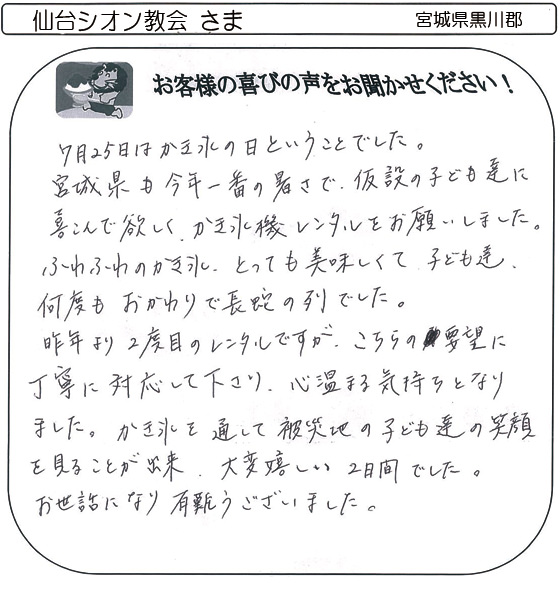 仙台シオン教会 さま
宮城県黒川郡
お客様の喜びの声をお聞かせください！
7月25日はかき氷の日ということでした。
宮城県も今年一番の暑さで、仮設の子ども達に
喜こんで欲しく、かき氷機レンタルをお願いしました。
ふわふわのかき氷、とっても美味しくて 子ども達、
何度も おかわりで長蛇の列でした。
昨年より2度目のレンタルですが、こちらの要望に
丁寧に対応して下さり、心温まる気持ちとなり
ました。かき氷を通して被災地の子ども達の笑顔
を見ることが出来、大変嬉しい2日間でした。
お世話になり有難うございました。